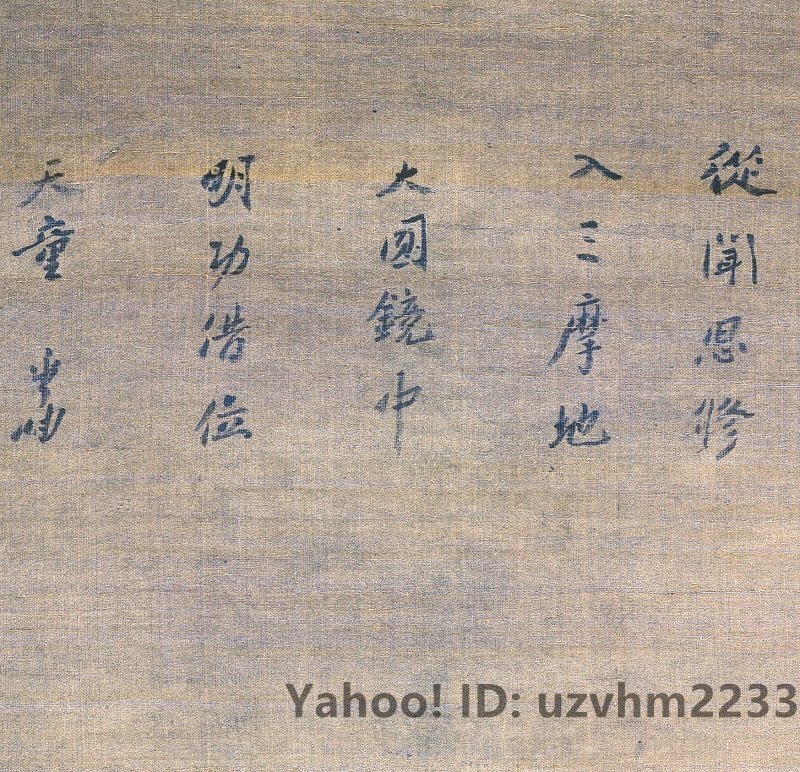 從聞思修
入三摩地
大圓鏡中
明功借位
天童
Yahoo! ID: uzvhm2233